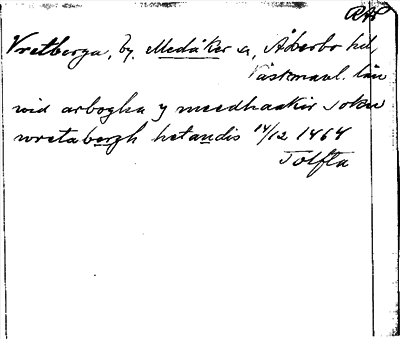 RAP
Vretberga, by, Medåker sn, Åkerbo hd,
Västmanl. län
wid arbogha y meedhaakir sokn
wretabergh hetandis 14/12 1464
Tolfta